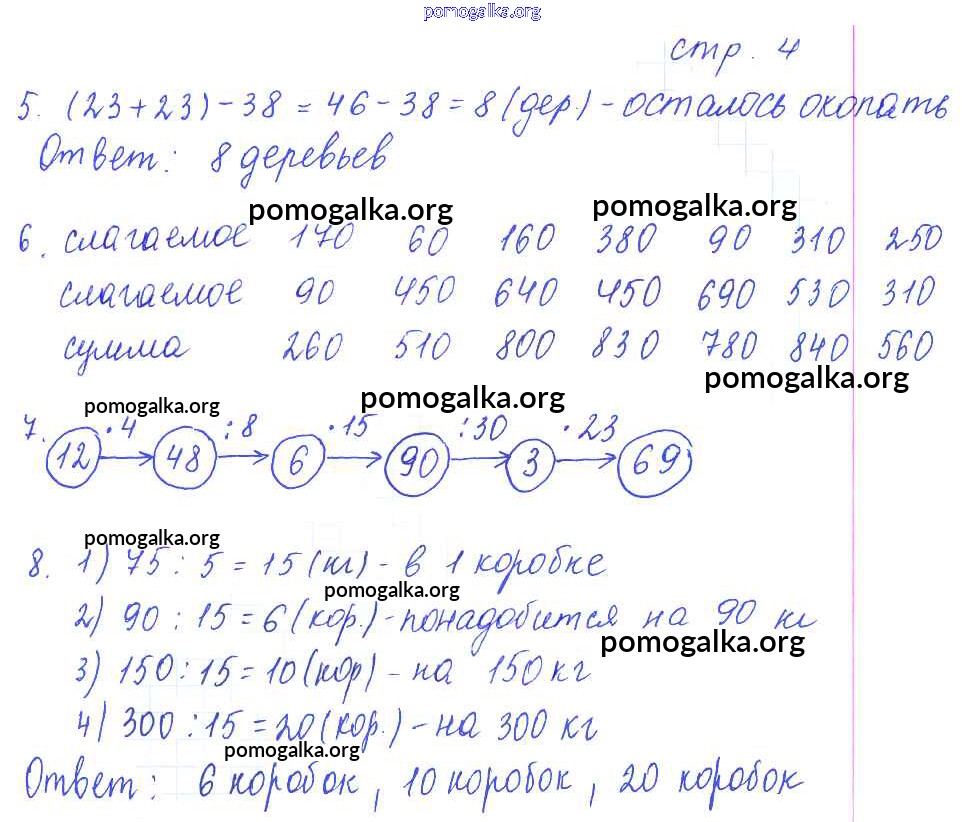 pomogalka.org
стр. 4
5. (23+23)-38=46-38=8(дер.)-осталось окопать
Ответ: 8 деревьев
pomogalka.org pomogalka.org
6. слагаемое 170 60 160 380 90 310 250
слагаемое 90 450 640 450 690 530 310
сумма 260 510 800 830 780 840 560
pomogalka.org pomogalka.org pomogalka.org
7. ·4 :8 ·15 :30 ·23
12 48 6 90 3 69
pomogalka.org
8. 1) 75:5=15(кг)-в 1 коробке
pomogalka.org
2) 90:15=6(кор.)-понадобится на 90 кг
pomogalka.org
3) 150:15=10(кор)-на 150 кг
4) 300:15=20(кор.)-на 300 кг
pomogalka.org
Ответ: 6 коробок, 10 коробок, 20 коробок